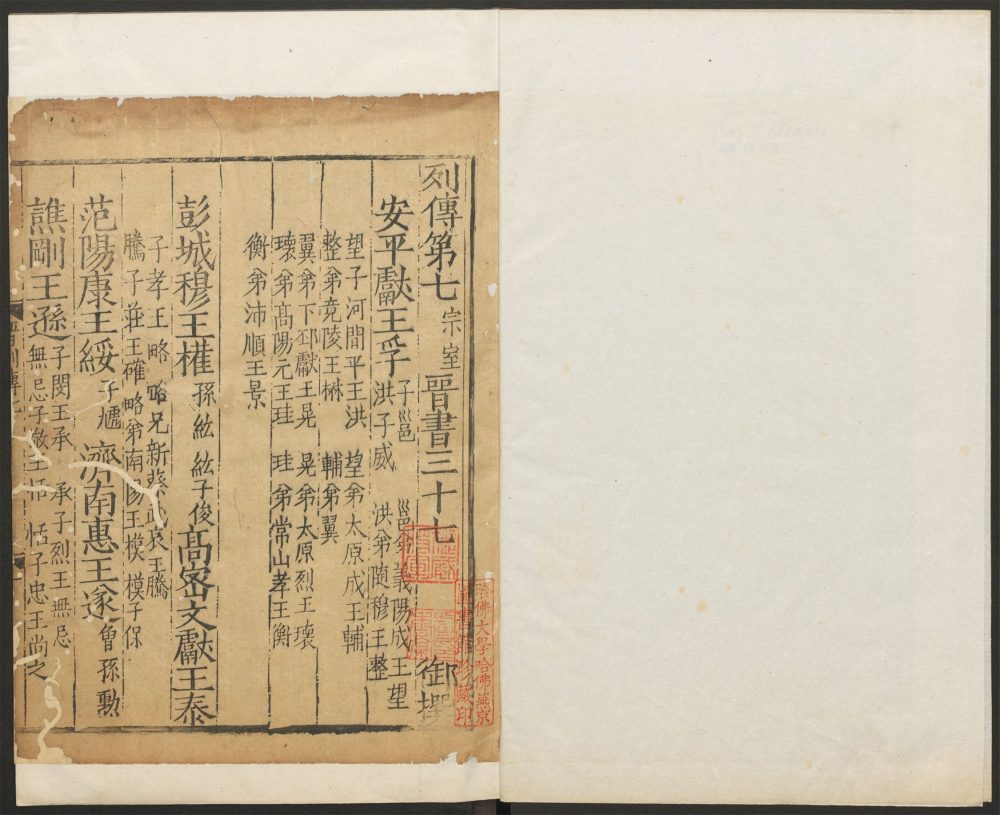 列傳第七 宗室 晉書三十七 御撰
安平獻王孚 子邕 邕弟義陽成王望
洪子威 洪弟隨穆王整
望子河間平王洪 望弟太原成王輔
整弟竟陵王楙 輔弟翼
翼弟下邳獻王晃 晃弟太原烈王瓌
瓌弟高陽元王珪 珪弟常山孝王衡
衡弟沛順王景
彭城穆王權 孫紘 紘子俊 高密文獻王泰
子孝王略 略兄新蔡武哀王騰
騰子莊王確 略弟南陽王模 模子保
范陽康王綏 子虓 濟南惠王遂 曾孫勳
譙剛王遜 子閔王承 承子烈王無忌
無忌子敬王恬 恬子忠王尚之
哈佛大學哈佛燕京
圖書館珍藏印